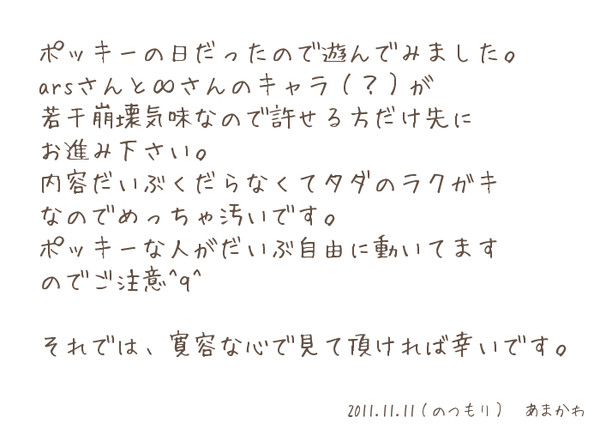 ポッキーの日だったので遊んでみました。
arsさんと∞さんのキャラ(？)が
若干崩壊気味なので許せる方だけ先に
お進み下さい。
内容だいぶくだらなくてタダのラクガキ
なのでめっちゃ汚いです。
ポッキーな人がだいぶ自由に動いてます
のでご注意^q^
それでは、寛容な心で見て頂ければ幸いです。
2011.11.11(のつもり)　あまかわ